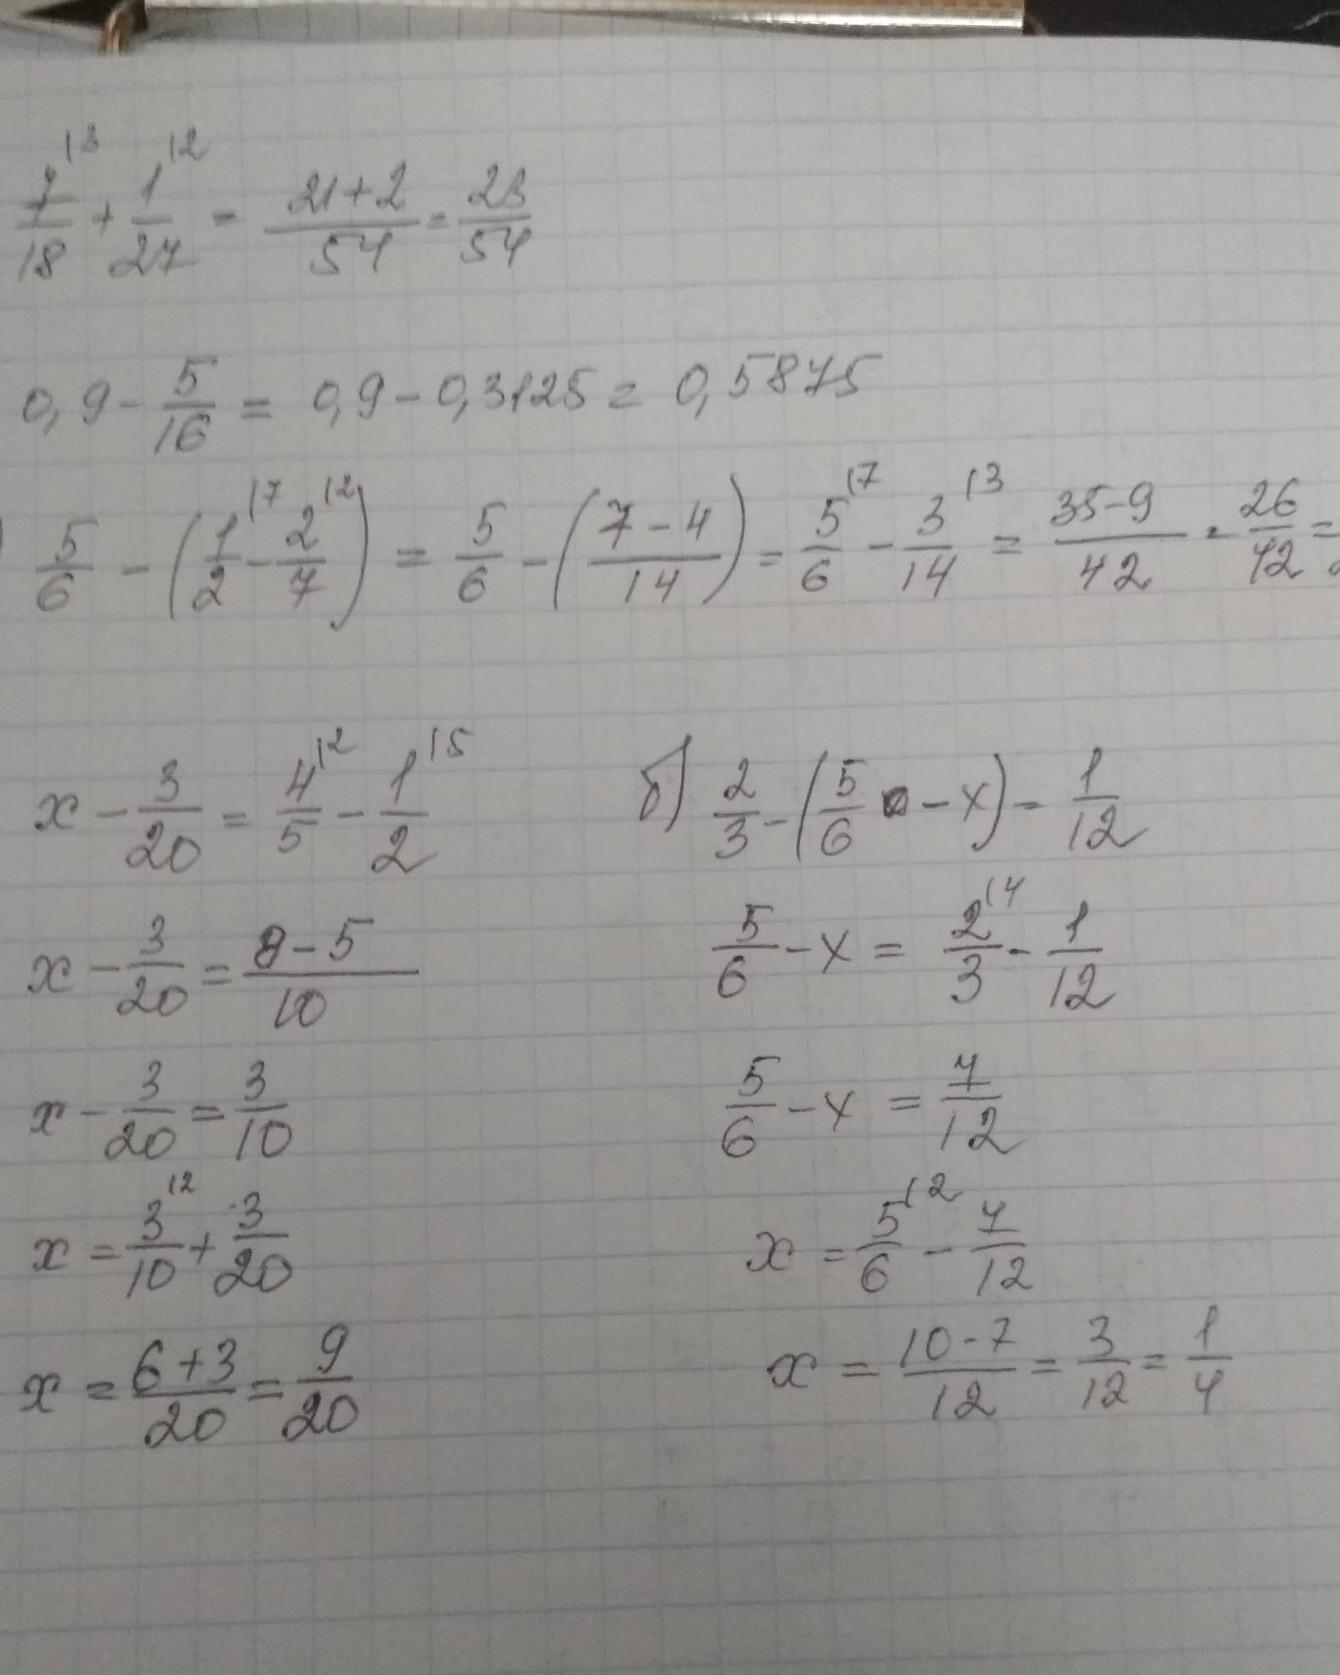 7/18 |3 + 1/27 |2 = (21+2)/54 = 23/54
0,9 - 5/16 = 0,9 - 0,3125 = 0,5875
5/6 - (1/2 |7 - 2/7 |2) = 5/6 - ((7-4)/14) = 5/6 |7 - 3/14 |3 = (35-9)/42 = 26/42 =
x - 3/20 = 4/5 |2 - 1/2 |5
x - 3/20 = (8-5)/10
x - 3/20 = 3/10
x = 3/10 |2 + 3/20
x = (6+3)/20 = 9/20
б) 2/3 - (5/6 - x) = 1/12
5/6 - x = 2/3 |4 - 1/12
5/6 - x = 7/12
x = 5/6 |2 - 7/12
x = (10-7)/12 = 3/12 = 1/4